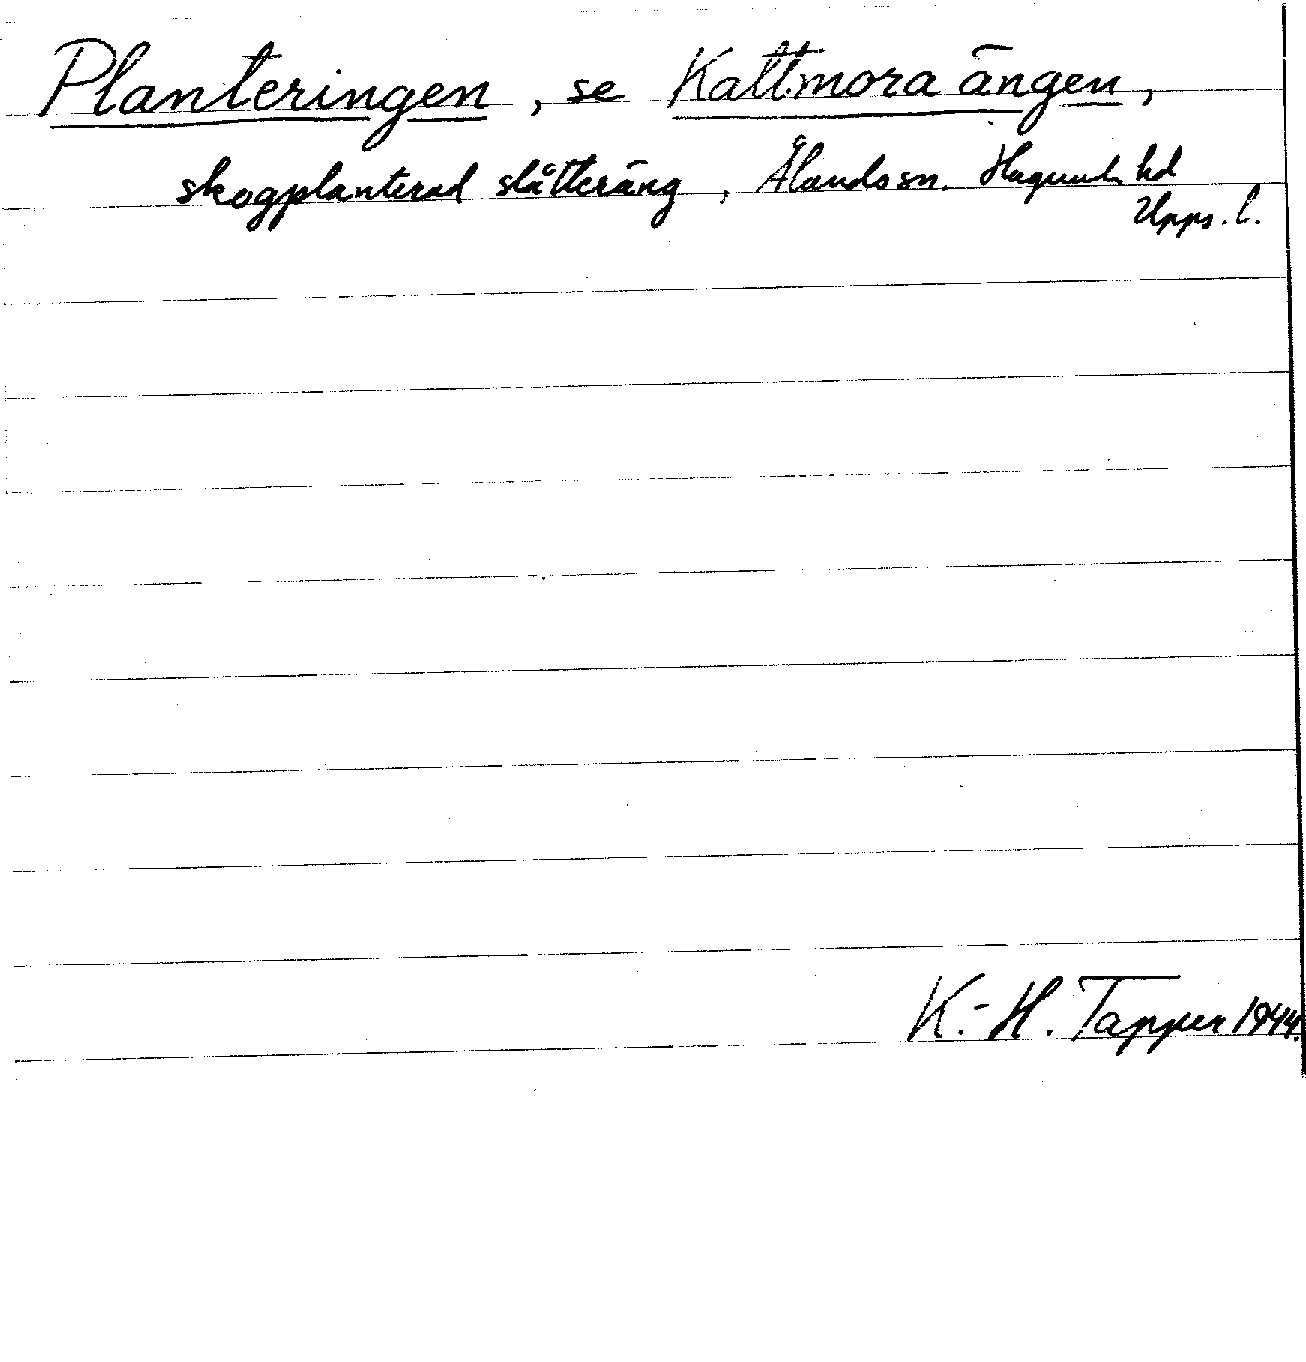 Planteringen, se Kattmora ängen,
skogplanterad slåtteräng, Ålands sn. Hagunda hd
Upps. l.
K.-H. Tapper 1944.